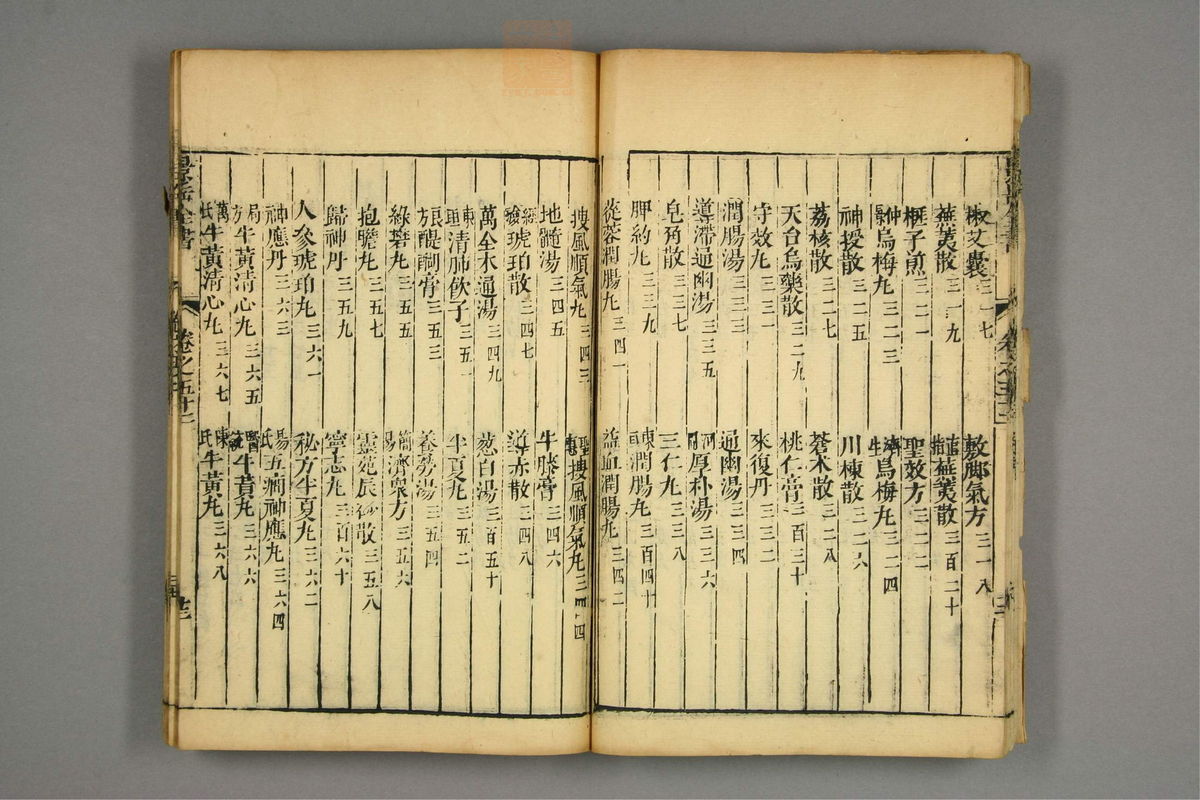 椒艾囊三一七 敷脚氣方三一八
蕪荑散三一九 蕪荑散三百二十
榧子煎三二一 聖效方三二二
仲景烏梅丸三二三 濟生烏梅丸三二四
神授散三二五 川楝散三二六
荔核散三二七 蒼木散三二八
天台烏藥散三二九 桃仁膏三百三十
守效丸三三一 來復丹三三二
潤腸湯三三三 通幽湯三三四
導滯通幽湯三三五 河間厚朴湯三三六
皂角散三三七 三仁丸三三八
脾約丸三三九 東垣潤腸丸三百四十
蓯蓉潤腸丸三四一 益血潤腸丸三四二
搜風順氣丸三四三 聖惠搜風順氣丸三四四
地髓湯三四五 牛膝膏三四六
琥珀散三四七 導赤散三四八
萬全木通湯三四九 葱白湯三百五十
東垣清肺飲子三五一 半夏丸三五二
醍醐膏三五三 養勞湯三五四
綠礬丸三五五 簡易濟衆方三五六
抱膽丸三五七 靈苑辰砂散三五八
歸神丹三五九 寧志丸三百六十
人參琥珀丸三六一 秘方半夏丸三六二
神應丹三六三 楊氏五癇神應丸三六四
局方牛黃清心丸三六五 醫統牛黃丸三六六
萬氏牛黃清心丸三六七 陳氏牛黃丸三六八
景岳全書 卷之五十三